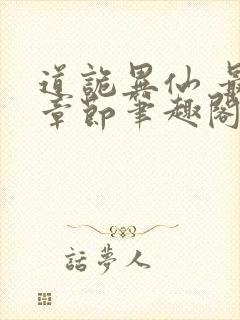 道詭異仙 最
章節筆趣閣
話夢人